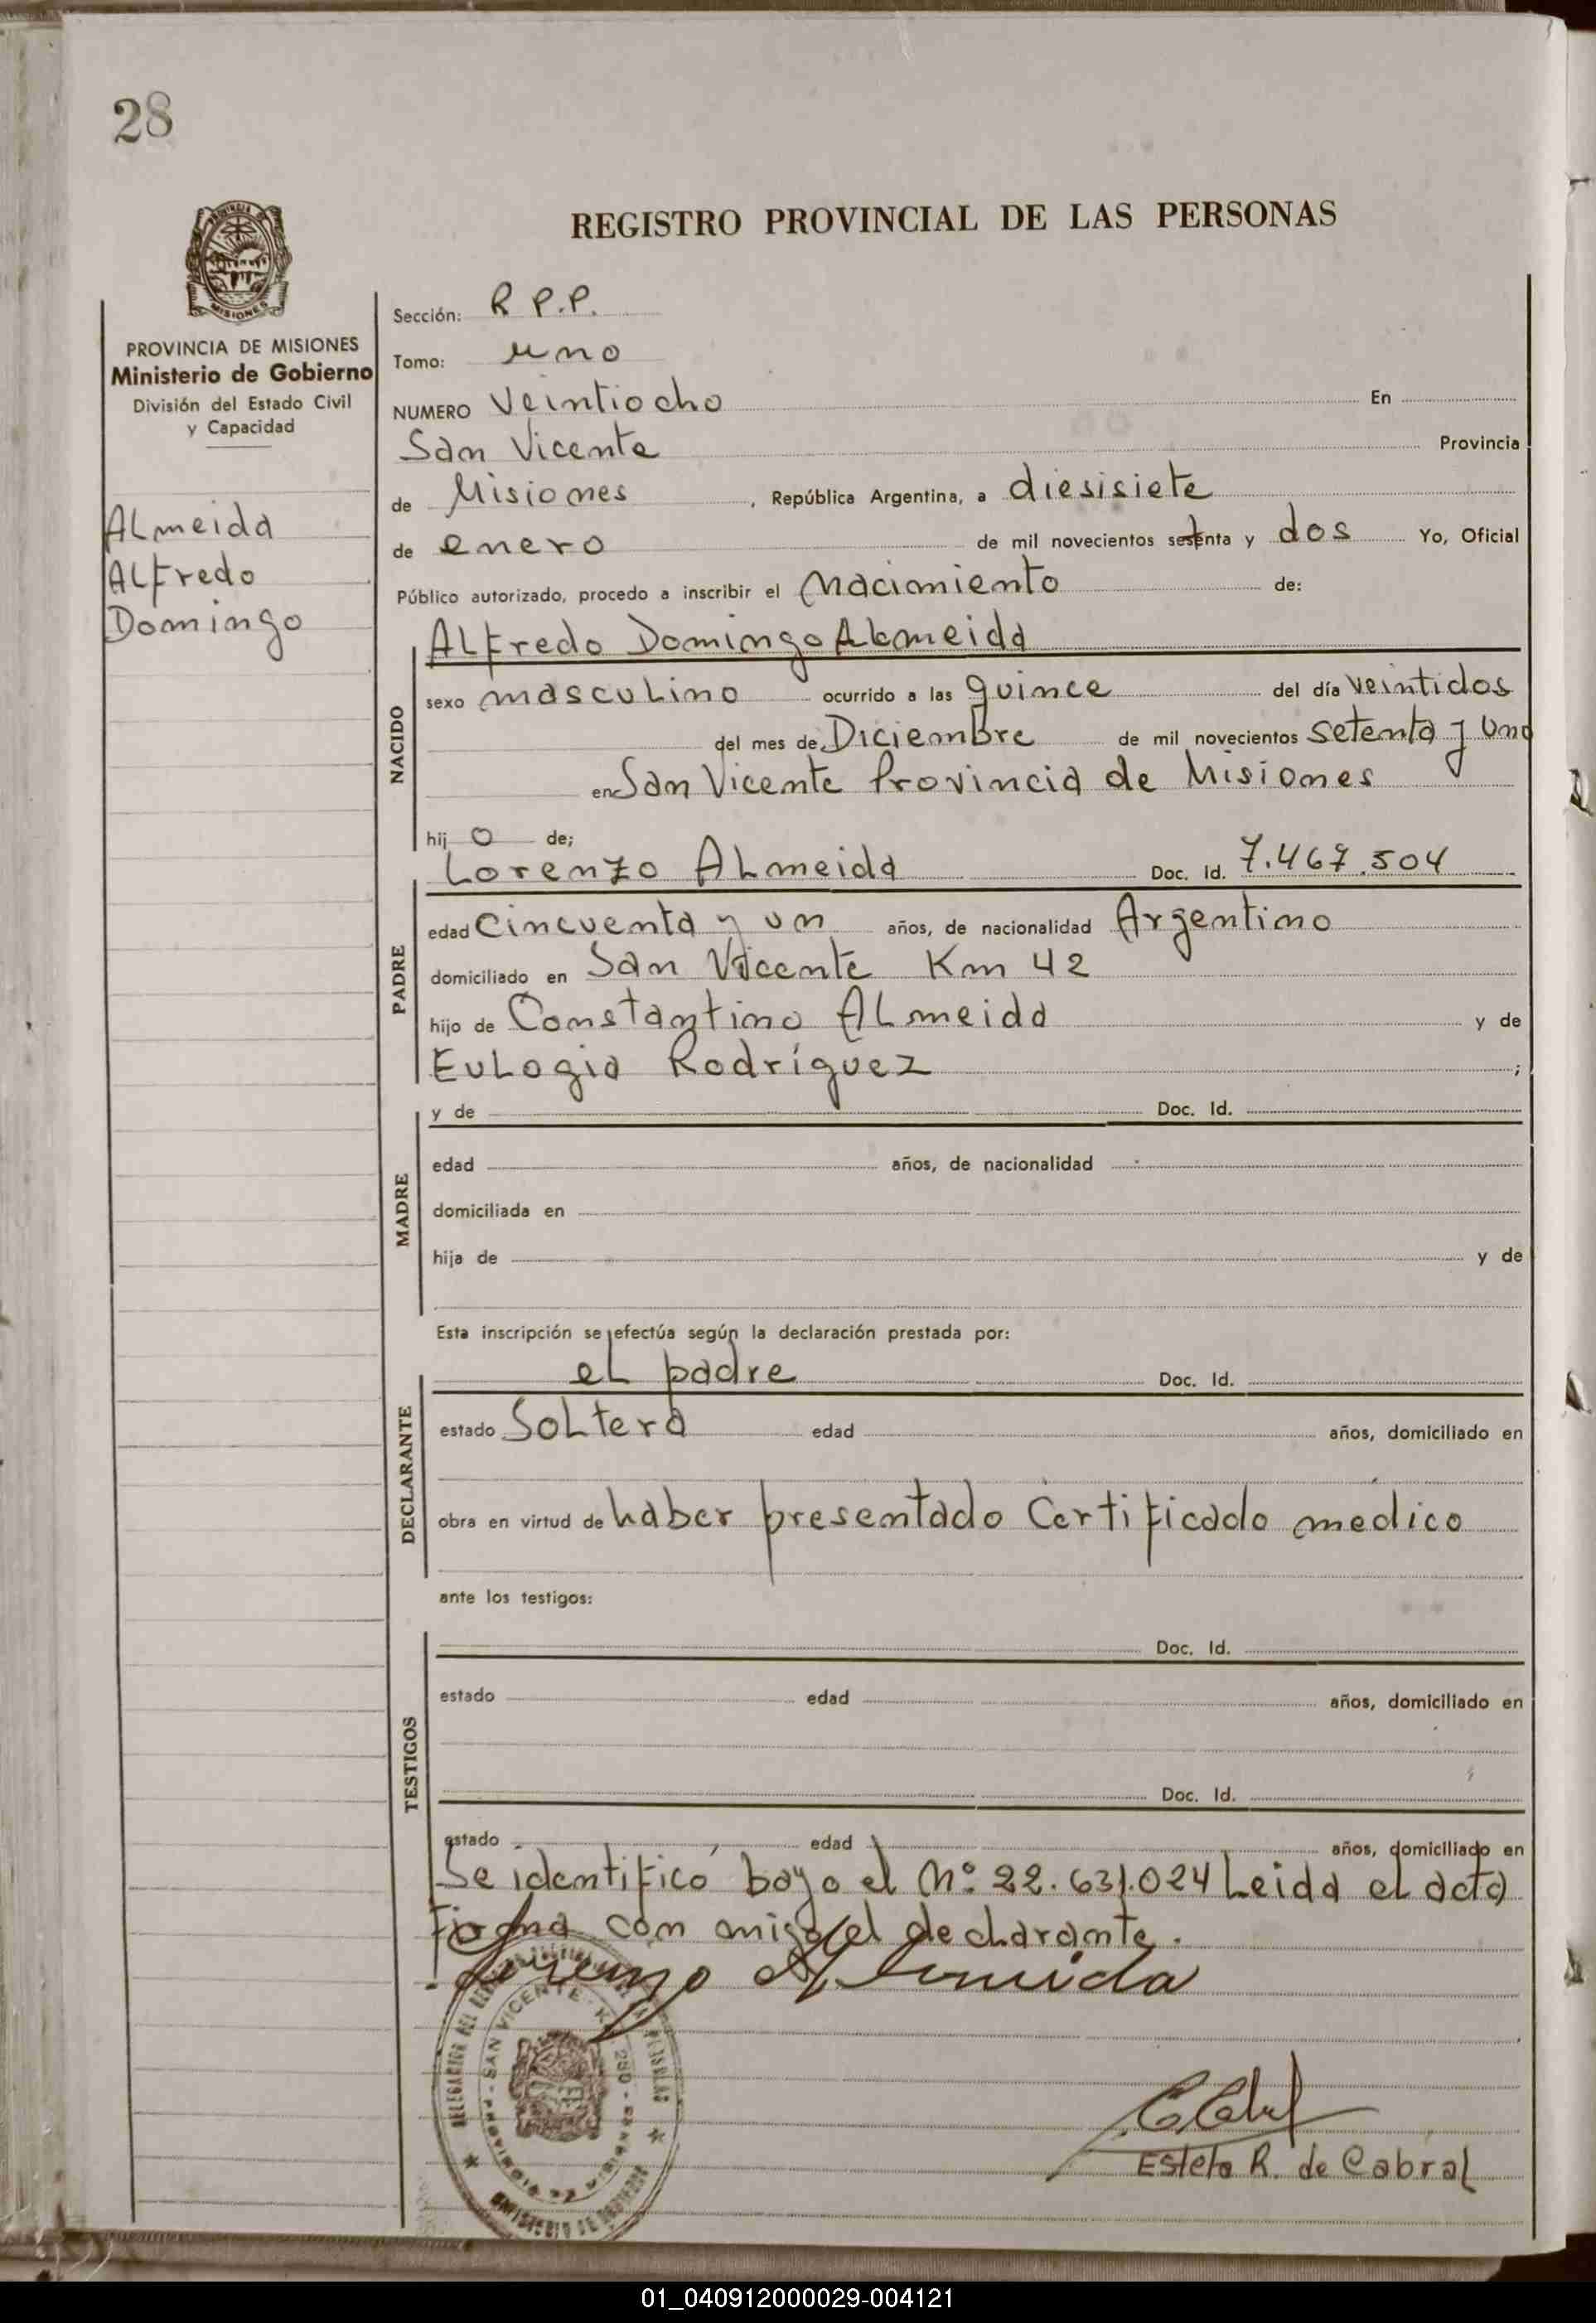 28
REGISTRO PROVINCIAL DE LAS PERSONAS
MISIONES
PROVINCIA DE MISIONES
Ministerio de Gobierno
División del Estado Civil
y Capacidad
Almeida
Alfredo
Domingo
Sección: R P.P.
Tomo: uno
NUMERO Veintiocho En
San Vicente Provincia
de Misiones, República Argentina, a diesisiete
de enero de mil novecientos setenta y dos Yo, Oficial
Público autorizado, procedo a inscribir el nacimiento de:
NACIDO
Alfredo Domingo Almeida
sexo masculino ocurrido a las quince del día veintidos
del mes de Diciembre de mil novecientos setenta y uno
en San Vicente Provincia de Misiones
hij o de;
PADRE
Lorenzo Almeida Doc. Id. 7.467.504
edad cincuenta y un años, de nacionalidad Argentino
domiciliado en San Vicente Km 42
hijo de Constantino Almeida y de
Eulogia Rodríguez ;
MADRE
y de Doc. Id.
edad años, de nacionalidad
domiciliada en
hija de y de
Esta inscripción se efectúa según la declaración prestada por:
DECLARANTE
el padre Doc. Id.
estado Soltero edad años, domiciliado en
obra en virtud de haber presentado Certificado medico
ante los testigos:
TESTIGOS
Doc. Id.
estado edad años, domiciliado en
Doc. Id.
estado edad años, domiciliado en
Se identificó bajo el Nº 22.631.024 Leida el acta
firma con migo el declarante.
Lorenzo Almeida
SAN VICENTE
Estela R. de Cabral
01_040912000029-004121